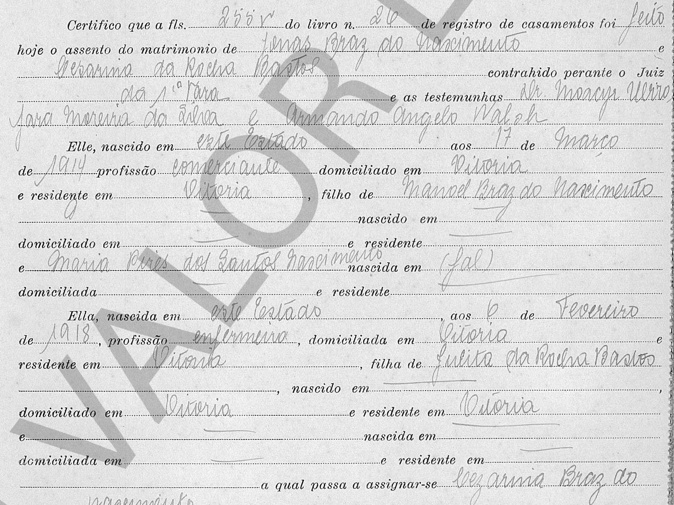 Certifico que a fls. 255v do livro n. 26 de registro de casamentos foi feito
hoje o assento do matrimonio de Jonas Braz do Nascimento e
Cezarina da Rocha Bastos contrahido perante o Juiz
da 1ª Vara e as testemunhas Dr. Moacyr
Jara Moreira da Silva e Armando Angelo
Elle, nascido em este Estado aos 17 de Março
de 1914 profissão comerciante domiciliado em Vitoria
e residente em Vitoria, filho de Manoel Braz do Nascimento
nascido em
domiciliado em e residente
e Maria Pires dos Santos Nascimento nascida em (fal)
domiciliada e residente
Ella, nascida em este Estado, aos 6 de Fevereiro
de 1918, profissão enfermeira, domiciliada em Vitoria e
residente em Vitoria, filha de Julita da Rocha Bastos
, nascido em ,
domiciliado em Vitoria e residente em Vitoria
e nascida em
domiciliada em e residente em
a qual passa a assignar-se Cezarina Braz do
Nascimento
VALOR